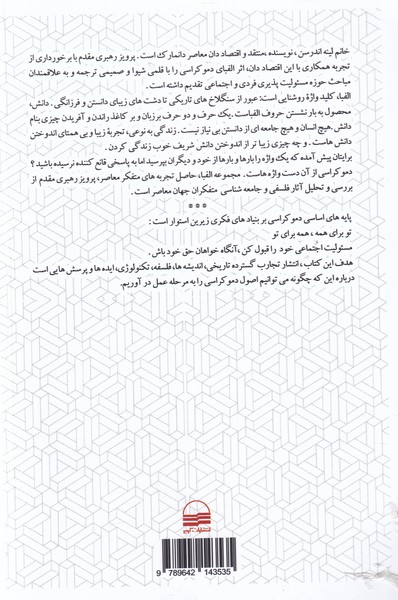 خانم لینه اندرسن، نویسنده ،منتقد و اقتصاد دان معاصر دانمارک است . پرویز رهبری مقدم با برخورداری از
تجربه همکاری با این اقتصاد دان، اثر الفبای دموکراسی را با قلمی شیوا و صمیمی ترجمه و به علاقمندان
مباحث حوزه مسئولیت پذیری فردی و اجتماعی تقدیم داشته است .
الفبا، کلید واژۀ روشنایی است: عبور از سنگلاخ های تاریکی تا دشت های زیبای دانستن و فرزانگی. دانش،
محصول به بار نشستن حروف الفباست . یک حرف و دو حرف بر زبان و بر کاغذ راندن و آفریدن چیزی بنام
دانش. هیچ انسان و هیچ جامعه ای از دانستن بی نیاز نیست . زندگی به نوعی، تجربۀ زیبا و بی همتای اندوختن
دانش هاست . و چه چیزی زیبا تر از اندوختن دانش شریف خوب زندگی کردن .
برایتان پیش آمده که یک واژه را بارها و بارها از خود و دیگران بپرسید اما به پاسخی قانع کننده نرسیده باشید ؟
دموکراسی از آن دست واژه هاست . مجموعه الفبا، حاصل تجربه های متفکر معاصر، پرویز رهبری مقدم از
بررسی و تحلیل آثار فلسفی و جامعه شناسی متفکران جهان معاصر است .
***
پایه های اساسی دموکراسی بر بنیاد های فکری زیرین استوار است :
تو برای همه ، همه برای تو
مسئولیت اجتماعی خود را قبول کن ،آنگاه خواهان حق خود باش .
هدف این کتاب، انتشار تجارب گسترده تاریخی، اندیشه ها، فلسفه، تکنولوژی، ایده ها و پرسش هایی است
درباره این که چگونه می توانیم اصول دموکراسی را به مرحله عمل در آوریم.
9 789642 143535